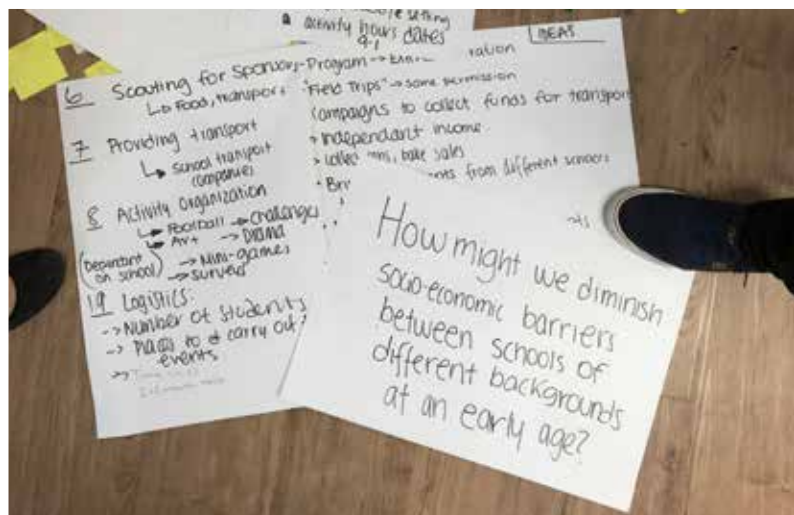 activity hours dates
9-1
6 Scouting for Sponsors
↳ Food, transport
7 Providing transport
↳ School transport
companies
8 Activity organization
↳ Football → challenges
↳ Art → Drama
(Dependant
on school) → Mini-games
→ surveys
19 Logistics:
-> Number of students
-> Pla(e) to carry out
events
IDEAS
-Program →
"Field Trips" → some permission
Campaigns to collect funds for transport
> Independant income
bake sales
from different schools
How might we diminish
socio-economic barriers
between schools of
different backgrounds
at an early age?